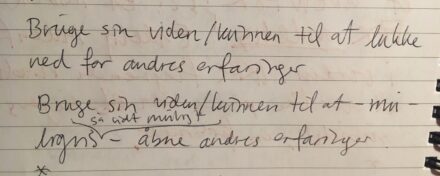 Bruge sin viden/kunnen til at lukke
ned for andres erfaringer
Bruge sin viden/kunnen til at
så vidt muligt
- åbne andres erfaringer
*